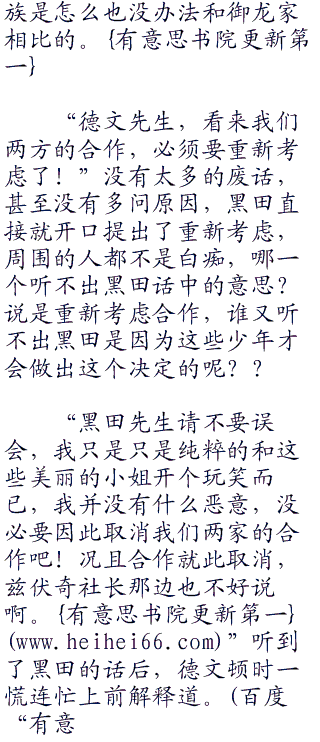 族是怎么也没办法和御龙家
相比的。{有意思书院更新第
一}
“德文先生，看来我们
两方的合作，必须要重新考
虑了！”没有太多的废话，
甚至没有多问原因，黑田直
接就开口提出了重新考虑，
周围的人都不是白痴，哪一
个听不出黑田话中的意思？
说是重新考虑合作，谁又听
不出黑田是因为这些少年才
会做出这个决定的呢？？
“黑田先生请不要误
会，我只是只是纯粹的和这
些美丽的小姐开个玩笑而
已，我并没有什么恶意，没
必要因此取消我们两家的合
作吧！况且合作就此取消，
兹伏奇社长那边也不好说
啊。{有意思书院更新第一}
(www.heihei66.com)”听到
了黑田的话后，德文顿时一
慌连忙上前解释道。(百度
“有意